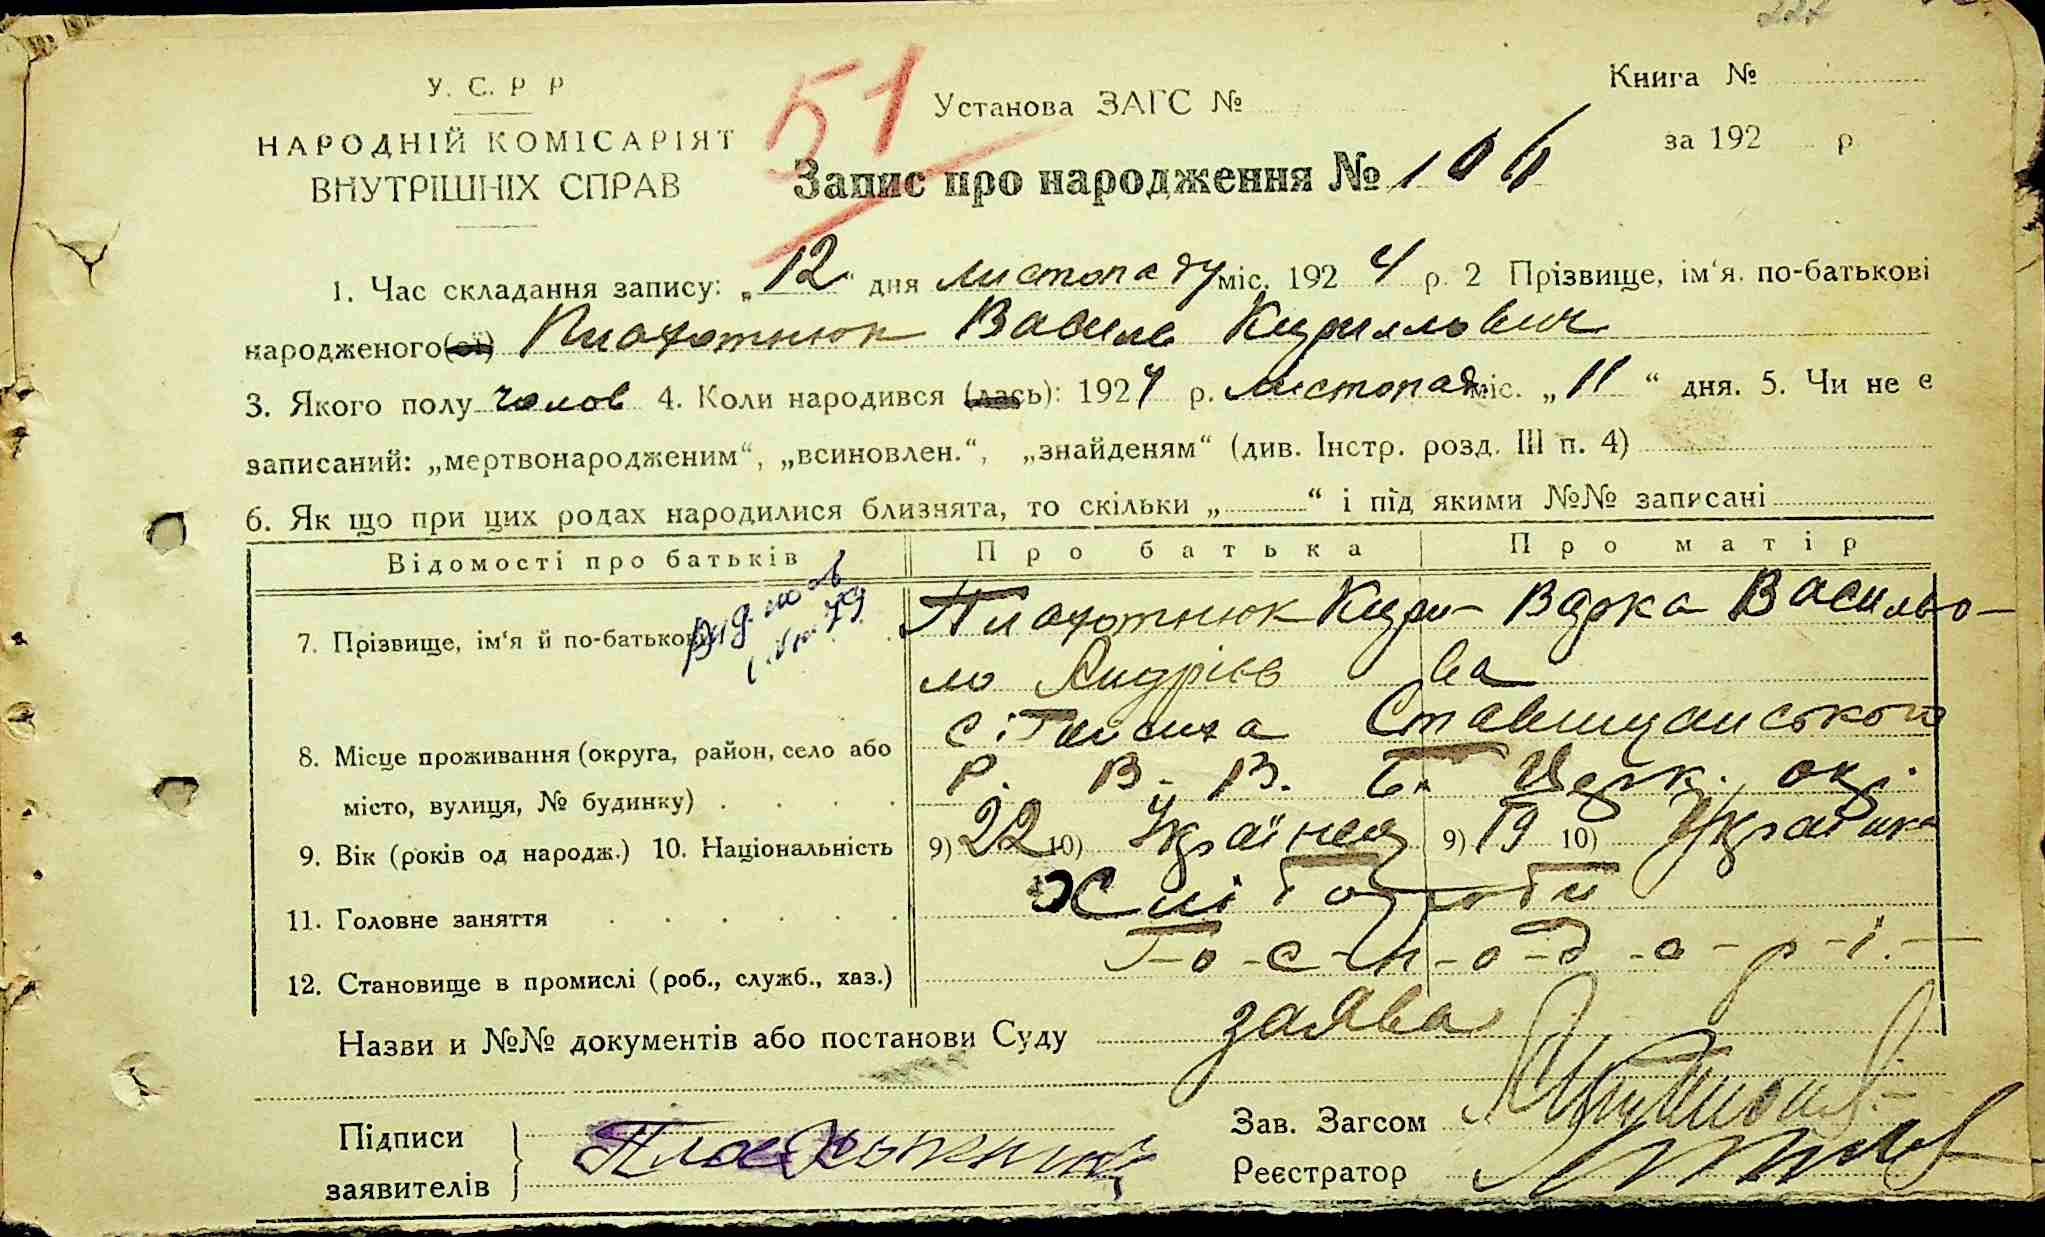 222
У. С. Р Р
НАРОДНІЙ КОМІСАРІЯТ
ВНУТРІШНІХ СПРАВ
51
Установа ЗАГС №
Книга №
за 192 р
Запис про народження № 106
1. Час складання запису: „12“ дня листопаду міс. 1924 р. 2 Прізвище, ім‘я. по-батькові
народженого(ої) Плахотнюк Василь Кириллович
3. Якого полу чолов 4. Коли народився (лась): 1924 р. листопад міс. „11“ дня. 5. Чи не є
записаний: „мертвонародженим“, „всиновлен.“, „знайденям“ (див. Інстр. розд. III п. 4)
6. Як що при цих родах народилися близнята, то скільки „ “ і під якими №№ записані
Відомості про батьків Про батька Про матір
7. Прізвище, ім‘я й по-батькові Плахотнюк Кири- Варка Васильо-
ло Андрієв ва
8. Місце проживання (округа, район, село або с. Ставищанського
місто, вулиця, № будинку) Р. Б. Церк. окр.
9. Вік (років од народж.) 10. Національність 9) 22 10) Українец 9) 19 10) Українка
11. Головне заняття Хлібороби
12. Становище в промислі (роб., служб., хаз.) Г-о-с-п-о-д-а-р-і.
Назви и №№ документів або постанови Суду заява
Підписи
заявителів
Зав. Загсом
Реєстратор